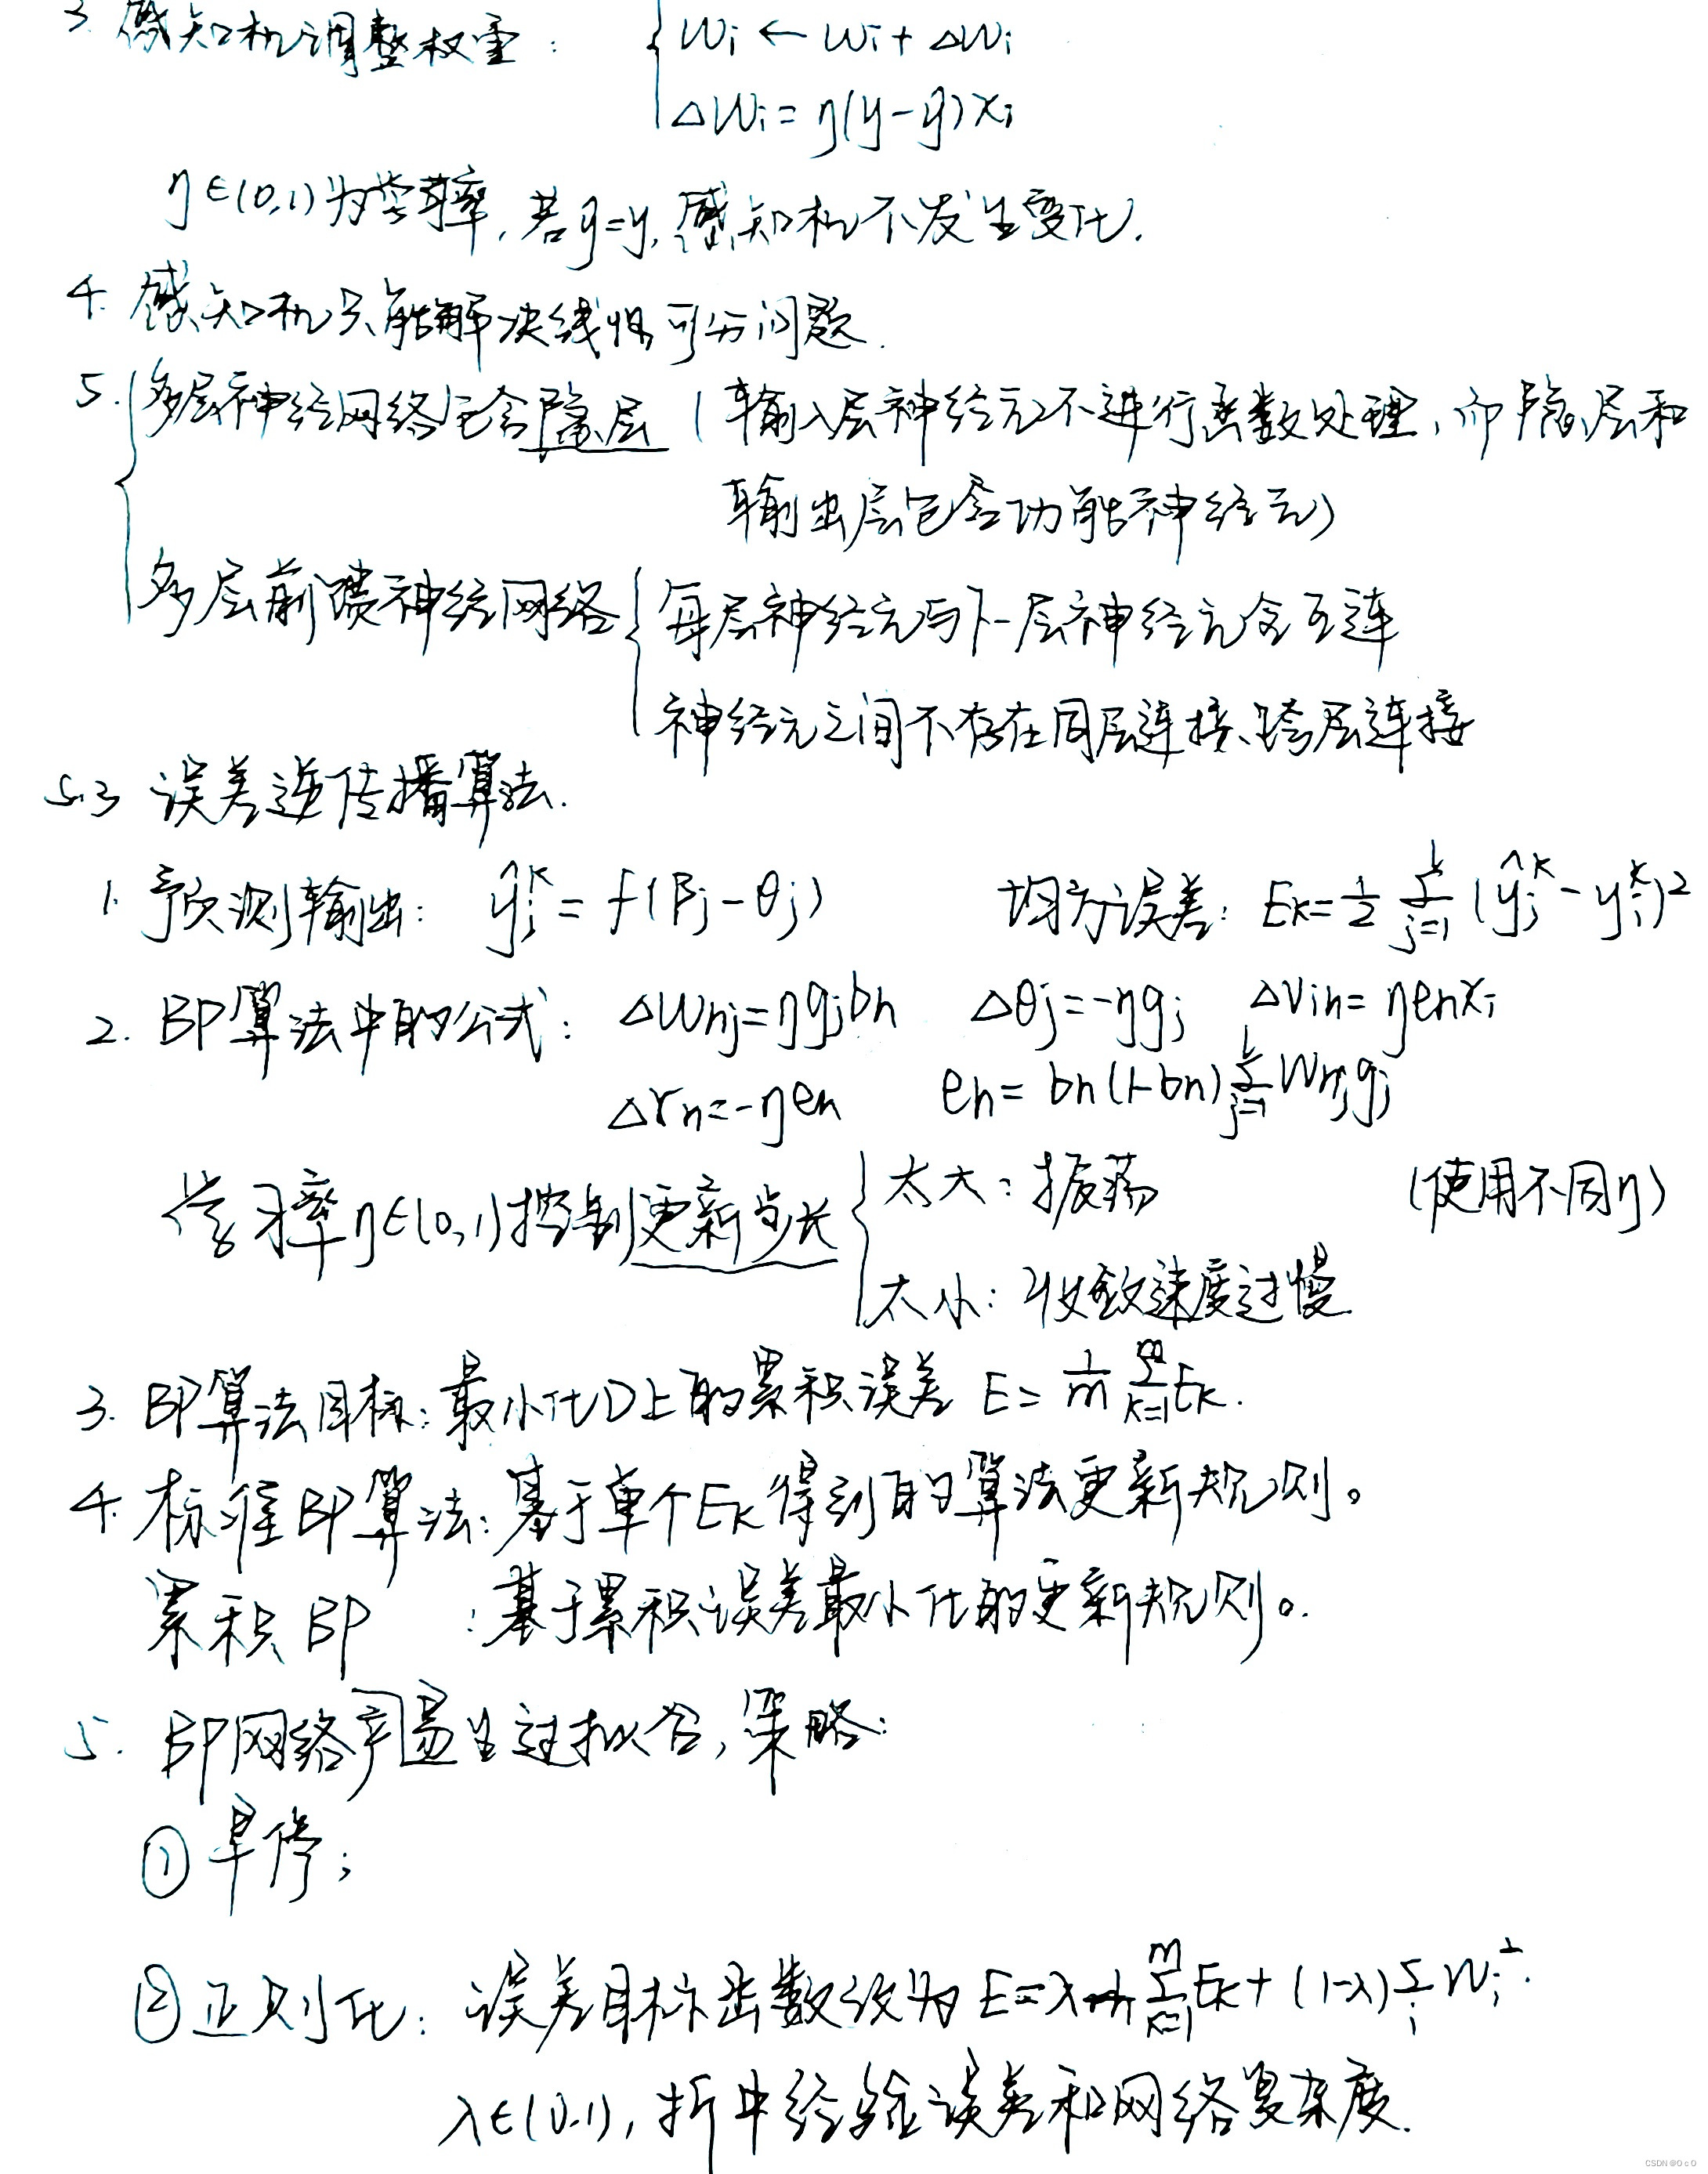 3. 感知机调整权重: { wi ← wi + Δwi
Δwi = η(y-ŷ)xi
η∈(0,1)为学习率, 若ŷ=y, 感知机不发生变化.
4. 感知机只能解决线性可分问题.
5. { 多层神经网络包含隐层 (输入层神经元不进行函数处理, 而隐层和
输出层包含功能神经元)
多层前馈神经网络 { 每层神经元与下一层神经元全互连
神经元之间不存在同层连接、跨层连接
5.3 误差逆传播算法.
1. 预测输出: ŷj^k = f(βj - θj) 均方误差: Ek = 1/2 Σ_{j=1}^{l} (ŷj^k - yj^k)^2
2. BP算法中的公式: Δwhj = ηgjbh Δθj = -ηgj Δvih = ηehxi
Δγh = -ηeh eh = bh(1-bh) Σ_{j=1}^{l} whjgj
学习率η∈(0,1)控制更新步长 { 太大: 振荡 (使用不同η)
太小: 收敛速度过慢
3. BP算法目标: 最小化D上的累积误差 E = 1/m Σ_{k=1}^{m} Ek.
4. 标准BP算法: 基于单个Ek得到的算法更新规则。
累积BP : 基于累积误差最小化的更新规则。
5. BP网络易产生过拟合, 策略:
① 早停;
② 正则化: 误差目标函数改为 E = λ 1/m Σ_{k=1}^{m} Ek + (1-λ) Σ_i wi^2.
λ∈(0.1), 折中经验误差和网络复杂度.
CSDN @O c O